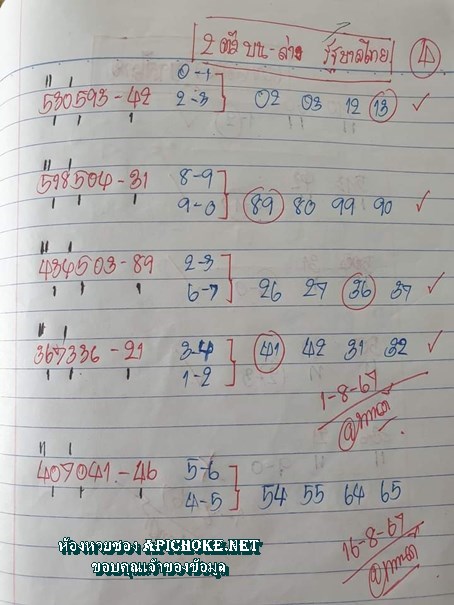 2 ตัว บน-ล่าง รัฐบาลไทย 4
0-1
530593-42 2-3 02 03 12 13 ✓
598504-31 8-9
9-0 89 80 99 90 ✓
434503-89 2-3
6-7 26 27 36 37 ✓
367336-21 3-4 41 42 31 32 ✓
1-2
1-8-67
407041-46 5-6
4-5 54 55 64 65
16-8-67
ห้องหวยของ APICHOKE.NET
ขอบคุณเจ้าของข้อมูล